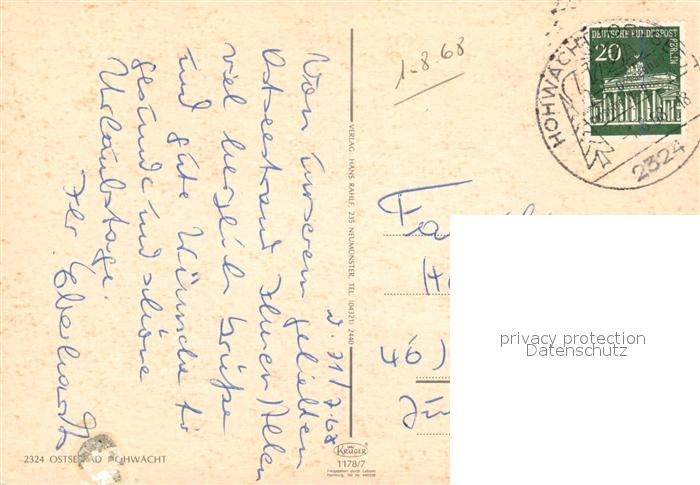 d. 31/7.68
Von unserem geliebten
Ostseestrand Ihnen Allen
viel herzliche Grüße
und gute Wünsche für
gesunde und schöne
Urlaubstage.
Ihr Eberhardt
2324 OSTSEEBAD HOHWACHT
VERLAG: HANS RAHLF, 235 NEUMÜNSTER, TEL. (04321) 2440
KRÜGER
1178/7
1-8.68
DEUTSCHE BUNDESPOST
BERLIN
20
HOHWACHT
2324
Fa
privacy protection
Datenschutz